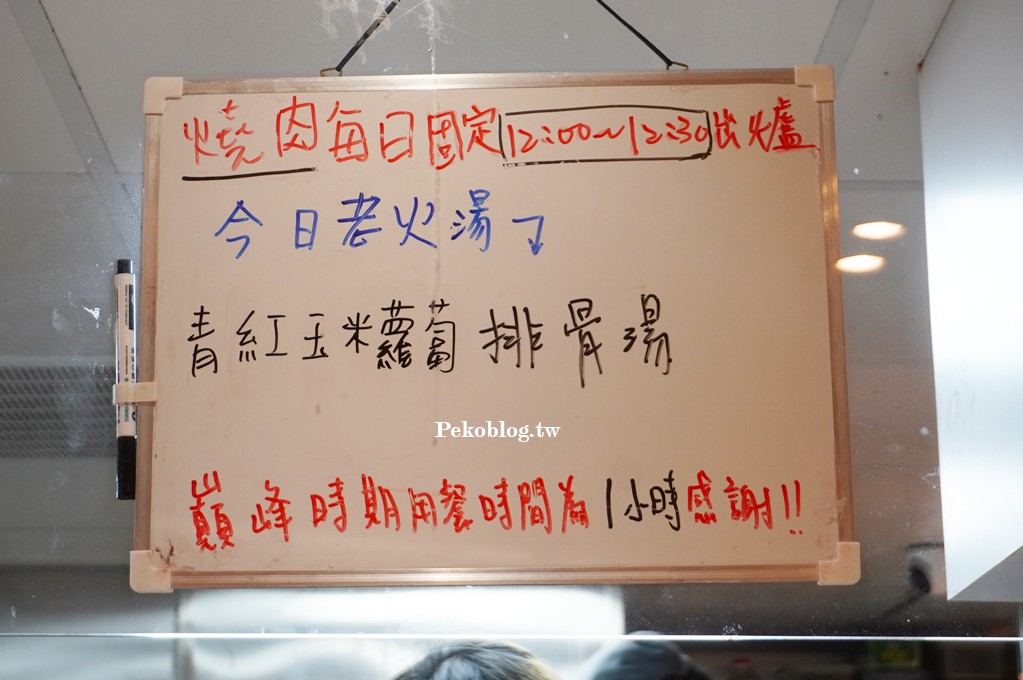 燒肉每日固定12:00~12:30出爐
今日老火湯
青紅玉米蘿蔔排骨湯
Pekoblog.tw
巔峰時期用餐時間為1小時感謝!!